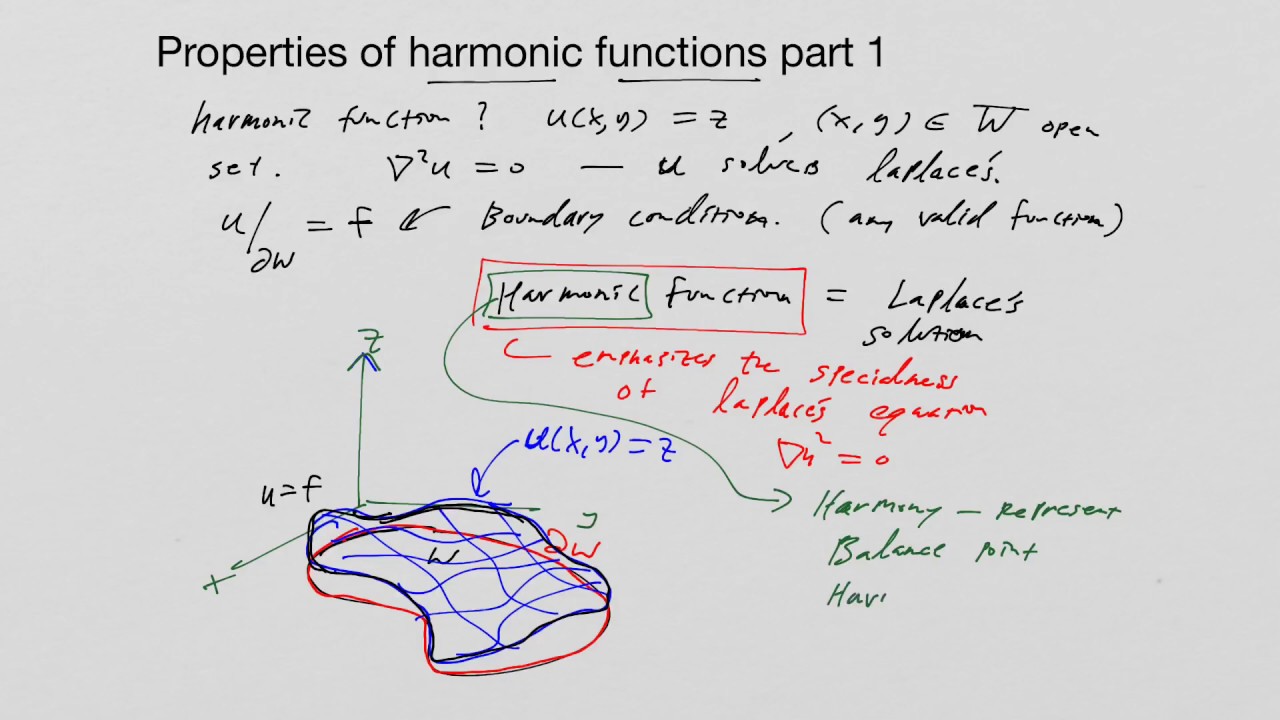 Properties of harmonic functions part 1
harmonic function ? u(x,y) = z , (x,y) ∈ W open
set. ∇²u = 0 — u solves laplace's.
u/∂W = f ← Boundary conditions. (any valid function)
Harmonic function = Laplace's
solution
emphasizes the specialness
of laplace's equation
∇u² = 0
z
u(x,y) = z
u = f
y
x
W
∂W
Harmony — represent
Balance point
Havi